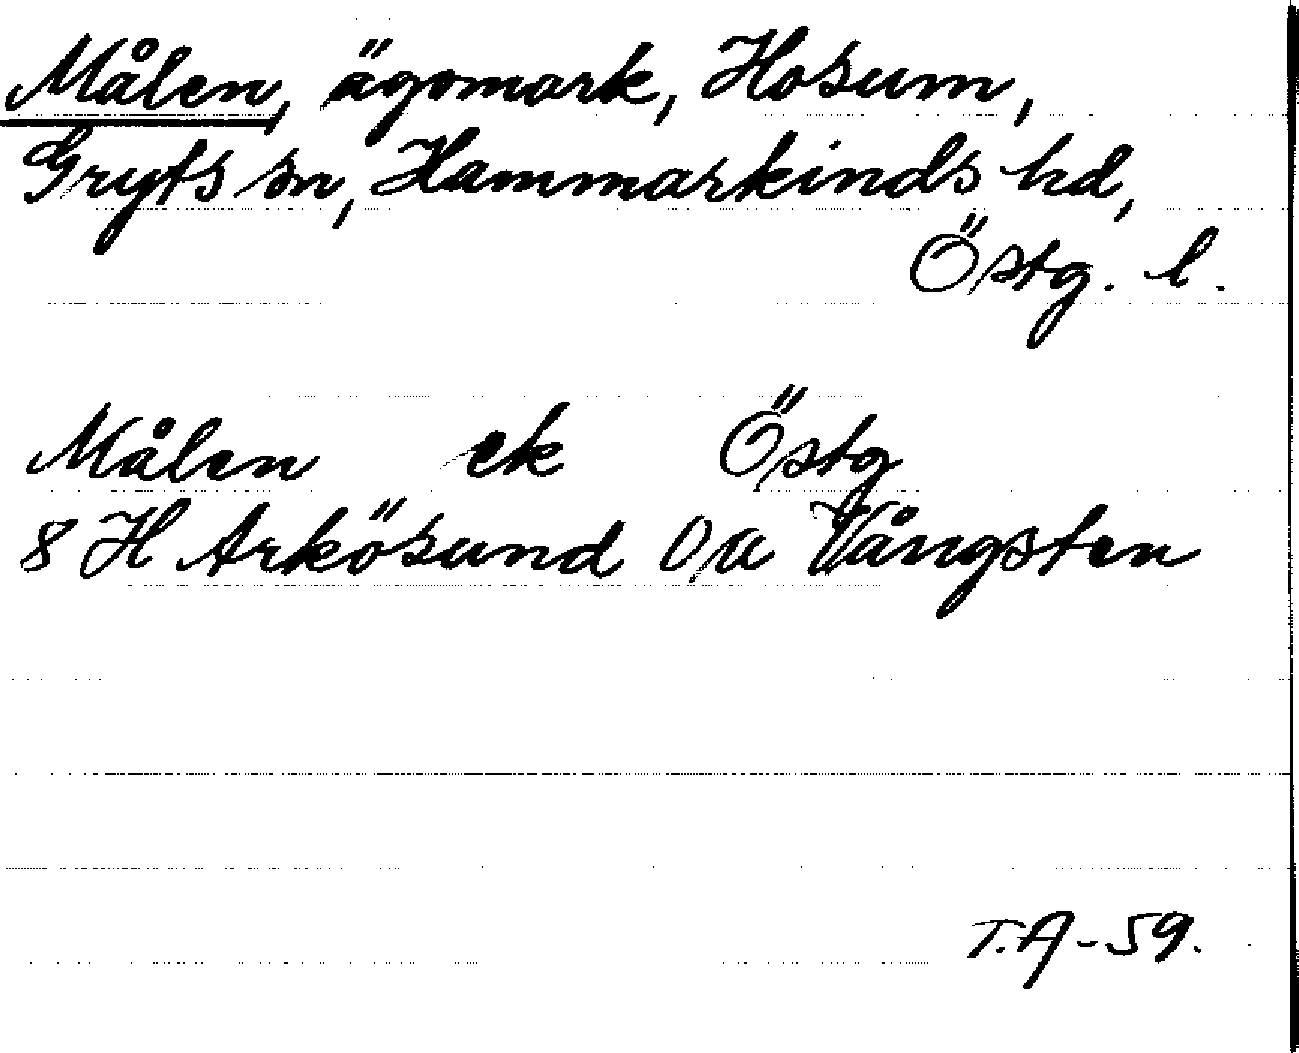 Målen, ägomark, Hosum,
Gryts sn, Hammarkinds hd,
Östg. l.
Målen ek Östg
8 H Arkösund Va Vångsten
T.A-59.